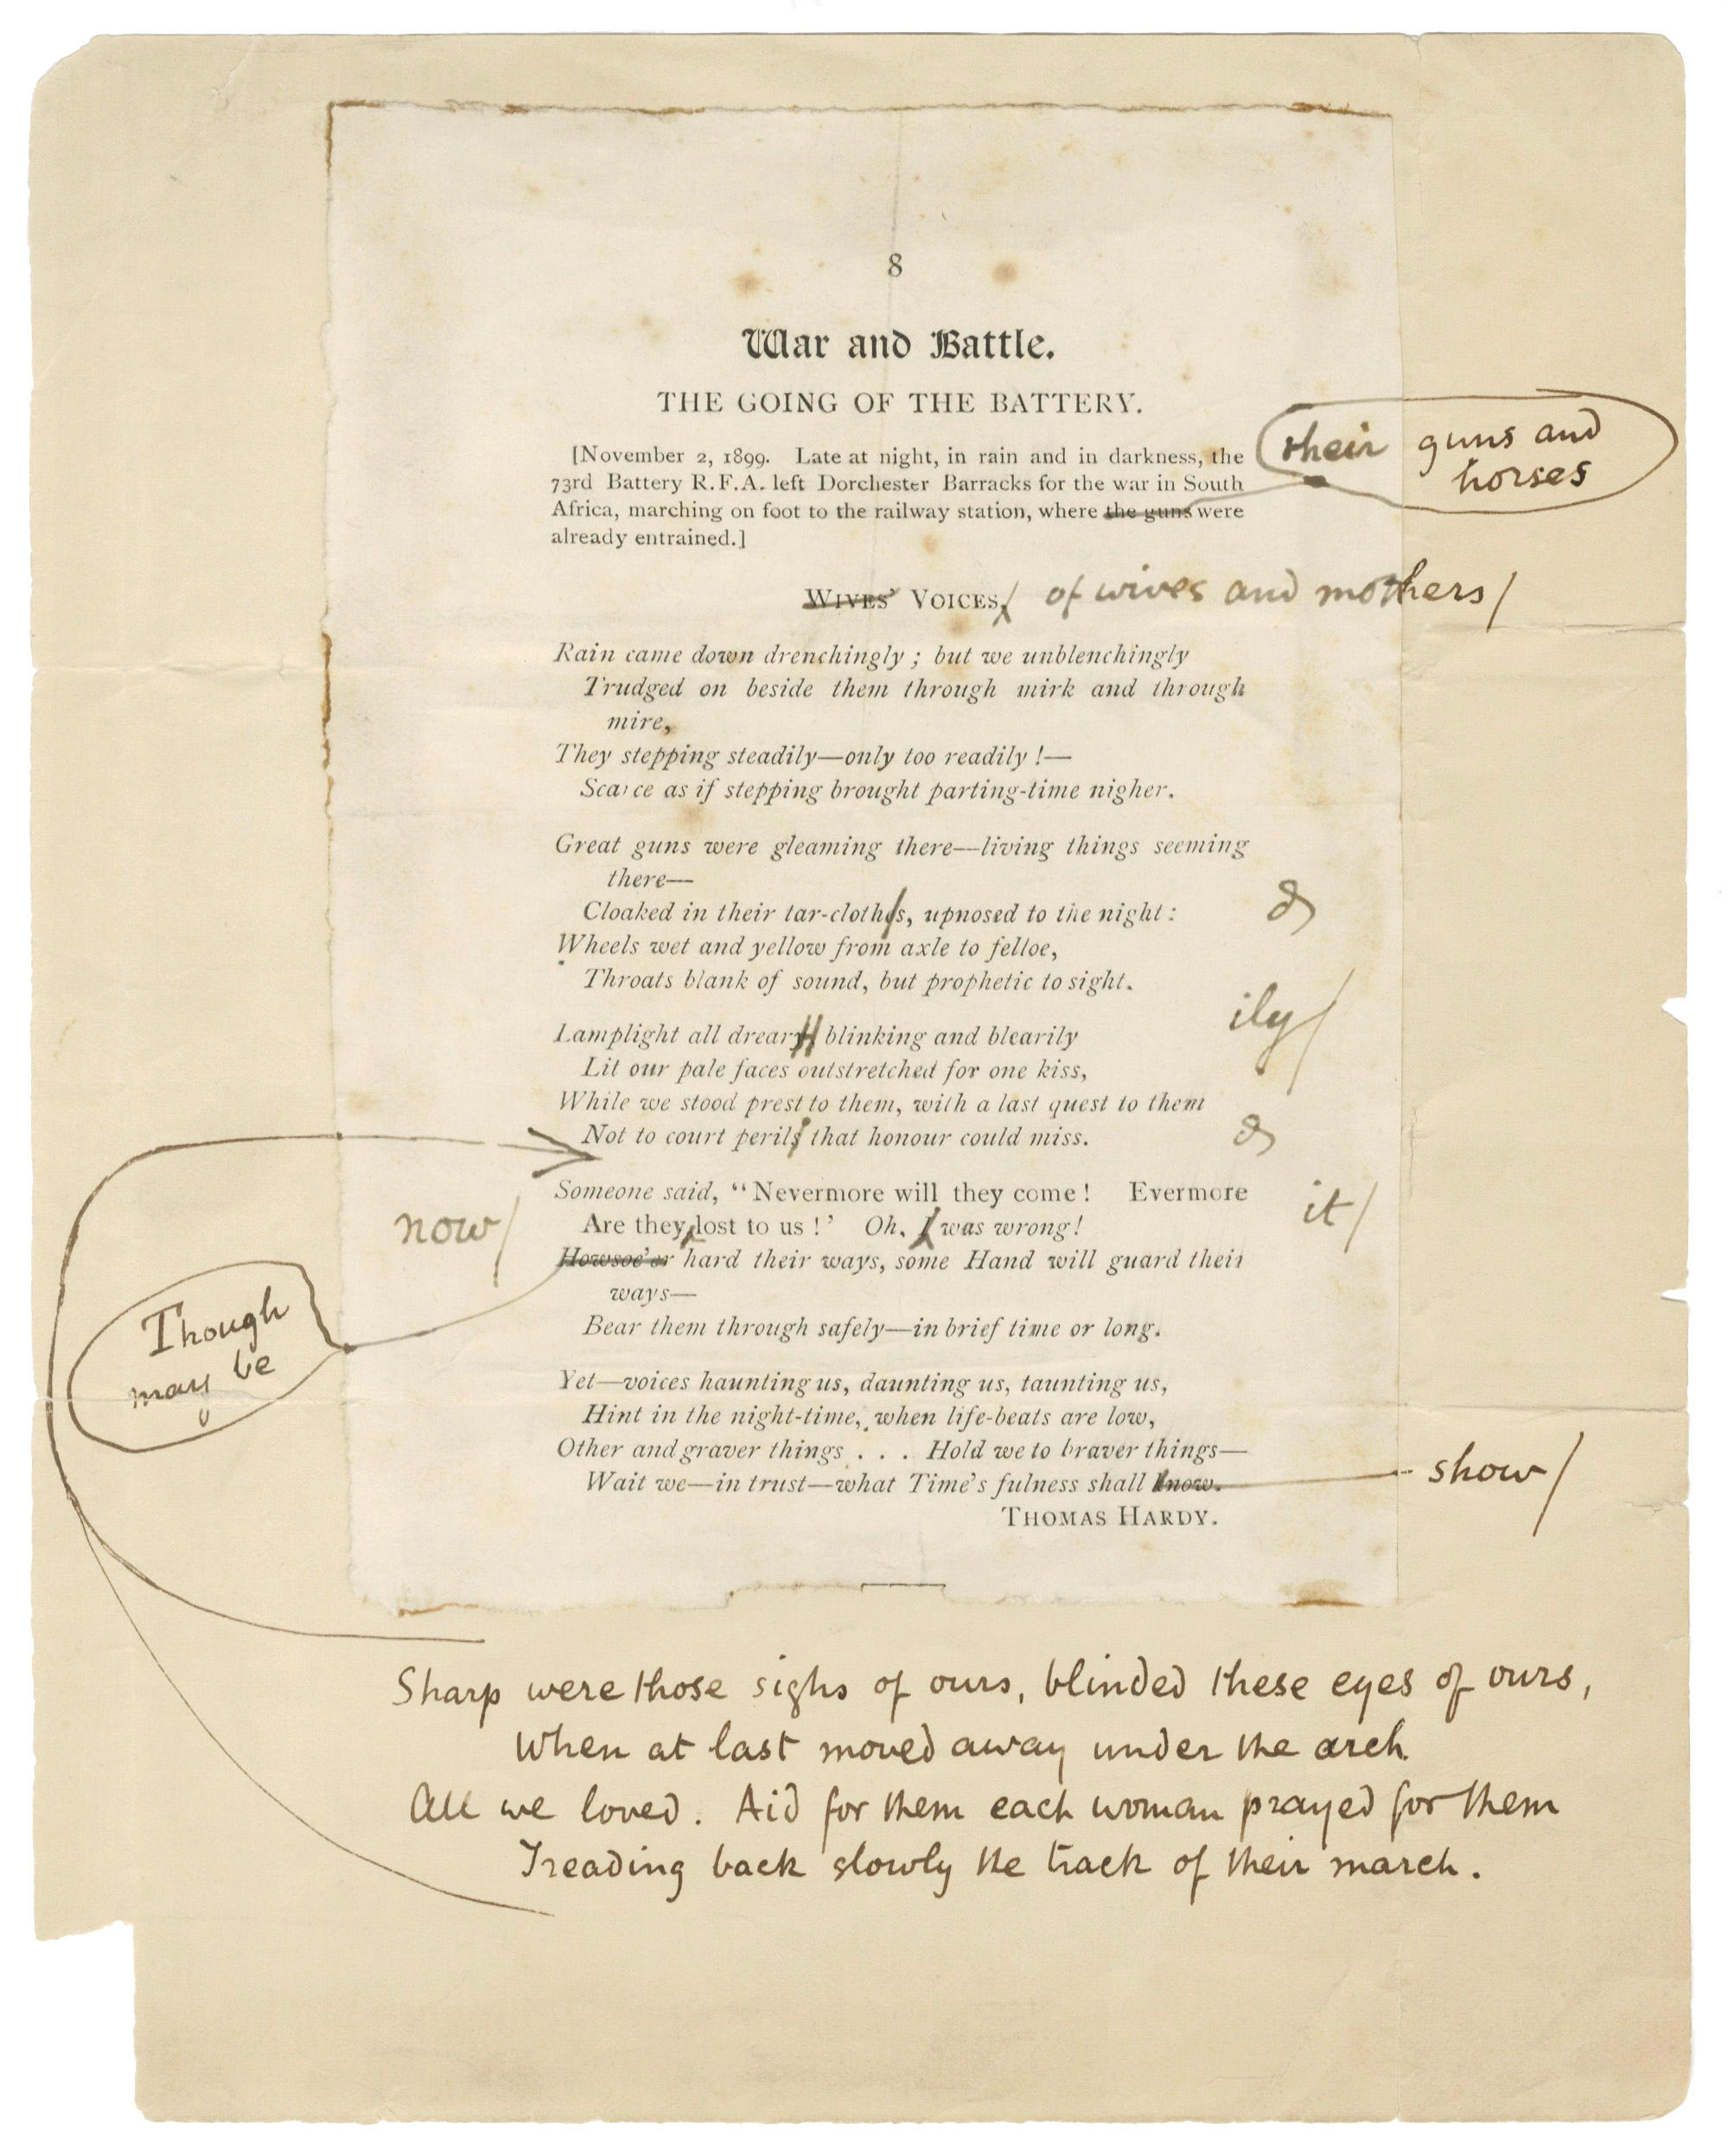 8
War and Battle.
THE GOING OF THE BATTERY.
[November 2, 1899. Late at night, in rain and in darkness, the
73rd Battery R.F.A. left Dorchester Barracks for the war in South
Africa, marching on foot to the railway station, where the guns were
already entrained.]
their guns and
horses
WIVES' VOICES, of wives and mothers/
Rain came down drenchingly ; but we unblenchingly
Trudged on beside them through mirk and through
mire,
They stepping steadily—only too readily !—
Scarce as if stepping brought parting-time nigher.
Great guns were gleaming there—living things seeming
there—
Cloaked in their tar-clothes, upnosed to the night :
Wheels wet and yellow from axle to felloe,
Throats blank of sound, but prophetic to sight.
Lamplight all dreary, blinking and blearily ily/
Lit our pale faces outstretched for one kiss,
While we stood prest to them, with a last quest to them
Not to court perils that honour could miss.
Someone said, “Nevermore will they come ! Evermore it/
now/ Are they lost to us !’ Oh, I was wrong!
Howsoe'er hard their ways, some Hand will guard their
ways—
Though
may be
Bear them through safely—in brief time or long.
Yet—voices haunting us, daunting us, taunting us,
Hint in the night-time, when life-beats are low,
Other and graver things . . . Hold we to braver things—
Wait we—in trust—what Time's fulness shall know. show/
THOMAS HARDY.
Sharp were those sighs of ours, blinded these eyes of ours,
When at last moved away under the arch
All we loved. Aid for them each woman prayed for them
Treading back slowly the track of their march.